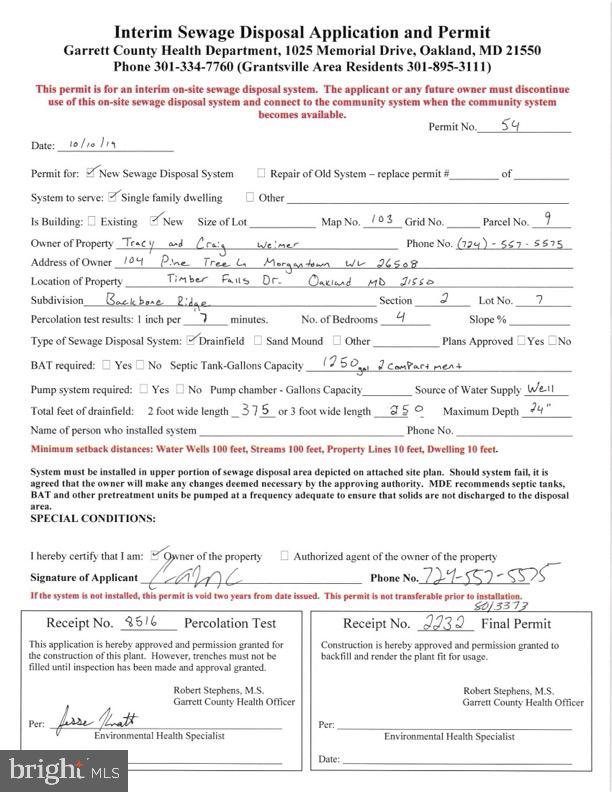 Interim Sewage Disposal Application and Permit
Garrett County Health Department, 1025 Memorial Drive, Oakland, MD 21550
Phone 301-334-7760 (Grantsville Area Residents 301-895-3111)
This permit is for an interim on-site sewage disposal system. The applicant or any future owner must discontinue
use of this on-site sewage disposal system and connect to the community system when the community system
becomes available.
Permit No. 54
Date: 10/10/19
Permit for: New Sewage Disposal System Repair of Old System – replace permit # of
System to serve: Single family dwelling Other
Is Building: Existing New Size of Lot Map No. 103 Grid No. Parcel No. 9
Owner of Property Tracy and Craig Weimer Phone No. (724)-557-5575
Address of Owner 104 Pine Tree Ln Morgantown WV 26508
Location of Property Timber Falls Dr. Oakland MD 21550
Subdivision Backbone Ridge Section 2 Lot No. 7
Percolation test results: 1 inch per 7 minutes. No. of Bedrooms 4 Slope %
Type of Sewage Disposal System: Drainfield Sand Mound Other Plans Approved Yes No
BAT required: Yes No Septic Tank-Gallons Capacity 1250 gal 2 compartment
Pump system required: Yes No Pump chamber - Gallons Capacity Source of Water Supply Well
Total feet of drainfield: 2 foot wide length 375 or 3 foot wide length 250 Maximum Depth 24"
Name of person who installed system Phone No.
Minimum setback distances: Water Wells 100 feet, Streams 100 feet, Property Lines 10 feet, Dwelling 10 feet.
System must be installed in upper portion of sewage disposal area depicted on attached site plan. Should system fail, it is
agreed that the owner will make any changes deemed necessary by the approving authority. MDE recommends septic tanks,
BAT and other pretreatment units be pumped at a frequency adequate to ensure that solids are not discharged to the disposal
area.
SPECIAL CONDITIONS:
I hereby certify that I am: Owner of the property Authorized agent of the owner of the property
Signature of Applicant Phone No. 724-557-5575
If the system is not installed, this permit is void two years from date issued. This permit is not transferable prior to installation.
8013373
Receipt No. 8516 Percolation Test
This application is hereby approved and permission granted for
the construction of this plant. However, trenches must not be
filled until inspection has been made and approval granted.
Robert Stephens, M.S.
Garrett County Health Officer
Per: Jesse
Environmental Health Specialist
Receipt No. 2232 Final Permit
Construction is hereby approved and permission granted to
backfill and render the plant fit for usage.
Robert Stephens, M.S.
Garrett County Health Officer
Per:
Environmental Health Specialist
Date:
bright MLS